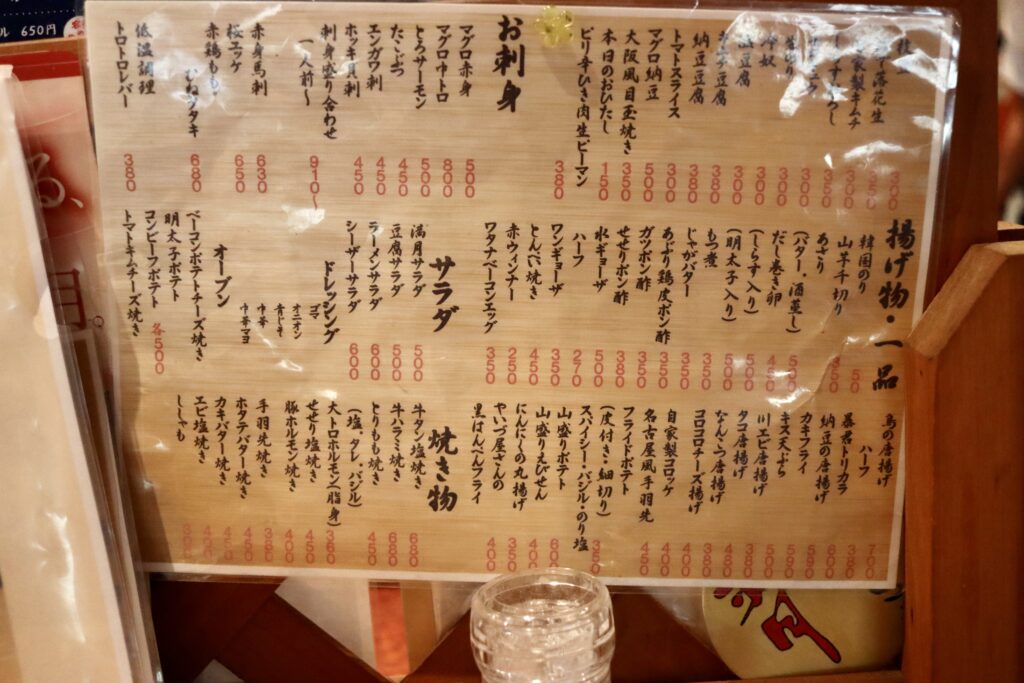 落花生
自家製キムチ
しらすおろし
冷奴
豆腐
納豆豆腐 380
トマトスライス 300
マグロ納豆 500
大阪風目玉焼き 350
本日のおひたし 150
ピリ辛ひき肉生ピーマン 380
お刺身
マグロ赤身 500
マグロ中トロ 800
とろサーモン 500
たこぶつ 450
エンガワ刺 450
ホッキ貝刺 450
刺身盛り合わせ
(一人前〜) 910〜
赤身馬刺 630
桜ユッケ 650
赤鶏もも
むねタタキ 680
低温調理
トロトロレバー 380
揚げ物・一品
韓国のり 50
山芋千切り 350
あさり
(バター・酒蒸し) 500
だし巻き卵 450
(しらす入り) 500
(明太子入り) 500
もつ煮 350
じゃがバター 350
あぶり鶏皮ポン酢 350
ガツポン酢 380
せせりポン酢 350
水ギョーザ 500
ハーフ 270
ワンギョーザ 500
とんぺい焼き 450
赤ウィンナー 250
ワタナベーコンエッグ 350
サラダ
満月サラダ 500
豆腐サラダ 500
ラーメンサラダ 600
シーザーサラダ 600
ドレッシング
ゴマ
オニオン
青じそ
中華
中華マヨ
オーブン
ベーコンポテトチーズ焼き
明太子ポテト
コンビーフポテト
トマトキムチーズ焼き
各500
鳥の唐揚げ 700
ハーフ 380
暴君トリカラ 800
納豆の唐揚げ
カキフライ 590
キス天ぷら 500
川エビ唐揚げ 450
タコ唐揚げ 380
なんこつ唐揚げ 380
コロコロチーズ揚げ 400
自家製コロッケ 400
名古屋風手羽先 450
フライドポテト
(皮付き・細切り)
スパイシー・バジル・のり塩
山盛りポテト 600
山盛りえびせん 400
にんにくの丸揚げ 350
やいづ屋さんの
黒はんぺんフライ 400
焼き物
牛タン塩焼き 680
牛ハラミ焼き 680
とりもも焼き
(塩、タレ、バジル) 450
大トロホルモン(脂身) 360
せせり塩焼き 450
豚ホルモン焼き 400
手羽先焼き 350
ホタテバター焼き 450
カキバター焼き 450
エビ塩焼き
ししゃも
ル 650円
る、